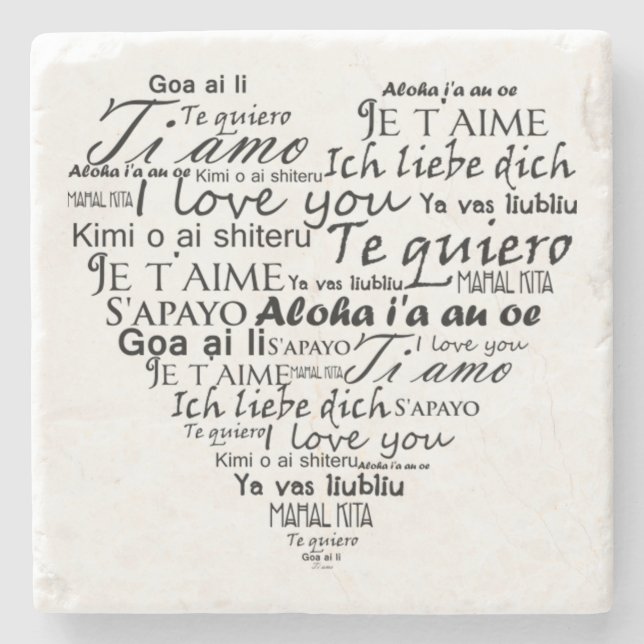 Goa ai li Aloha i'a au oe
Te quiero JE T'AIME
Ti amo Ich liebe dich
Aloha i'a au oe Kimi o ai shiteru
MAHAL KITA I love you Ya vas liubliu
Kimi o ai shiteru Te quiero
JE T'AIME Ya vas liubliu MAHAL KITA
S'APAYO Aloha i'a au oe
Goa ai li S'APAYO I love you
JE T'AIME MAHAL KITA Ti amo
Ich liebe dich S'APAYO
Te quiero I love you
Kimi o ai shiteru Aloha i'a au oe
Ya vas liubliu
MAHAL KITA
Te quiero
Goa ai li
Ti amo